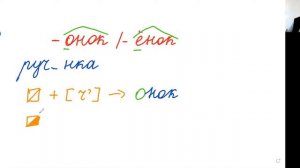 - онок /- ёнок
руч_нка
+ [ч'] → онок